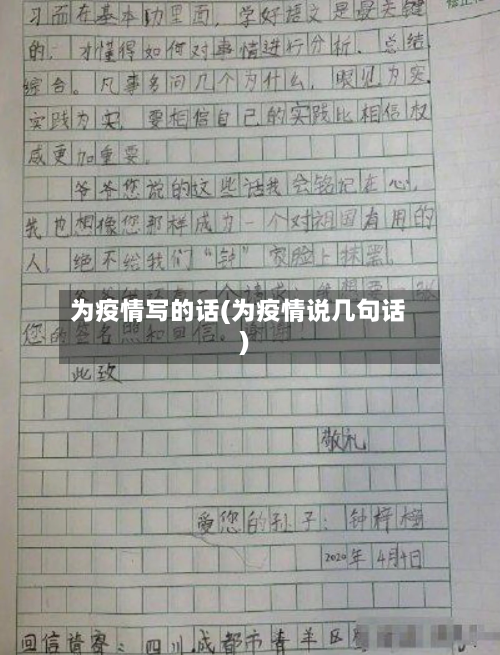 习而在基本功里面，学好语文是最关键
的，才懂得如何对事情进行分析、总结、
综合。凡事多问几个为什么，眼见为实，
实践为实，要相信自己的实践比相信权
威更加重要。
爷爷您说的这些话我会铭记在心，
我也想像您那样成为一个对祖国有用的
人，绝不给我们“钟”家脸上抹黑。
为疫情写的话(为疫情说几句话
)
您的签名照和回信。谢谢
此致
敬礼
爱您的孙子：钟梓
2020年4月4日
回信皆寄：四川成都市青羊区